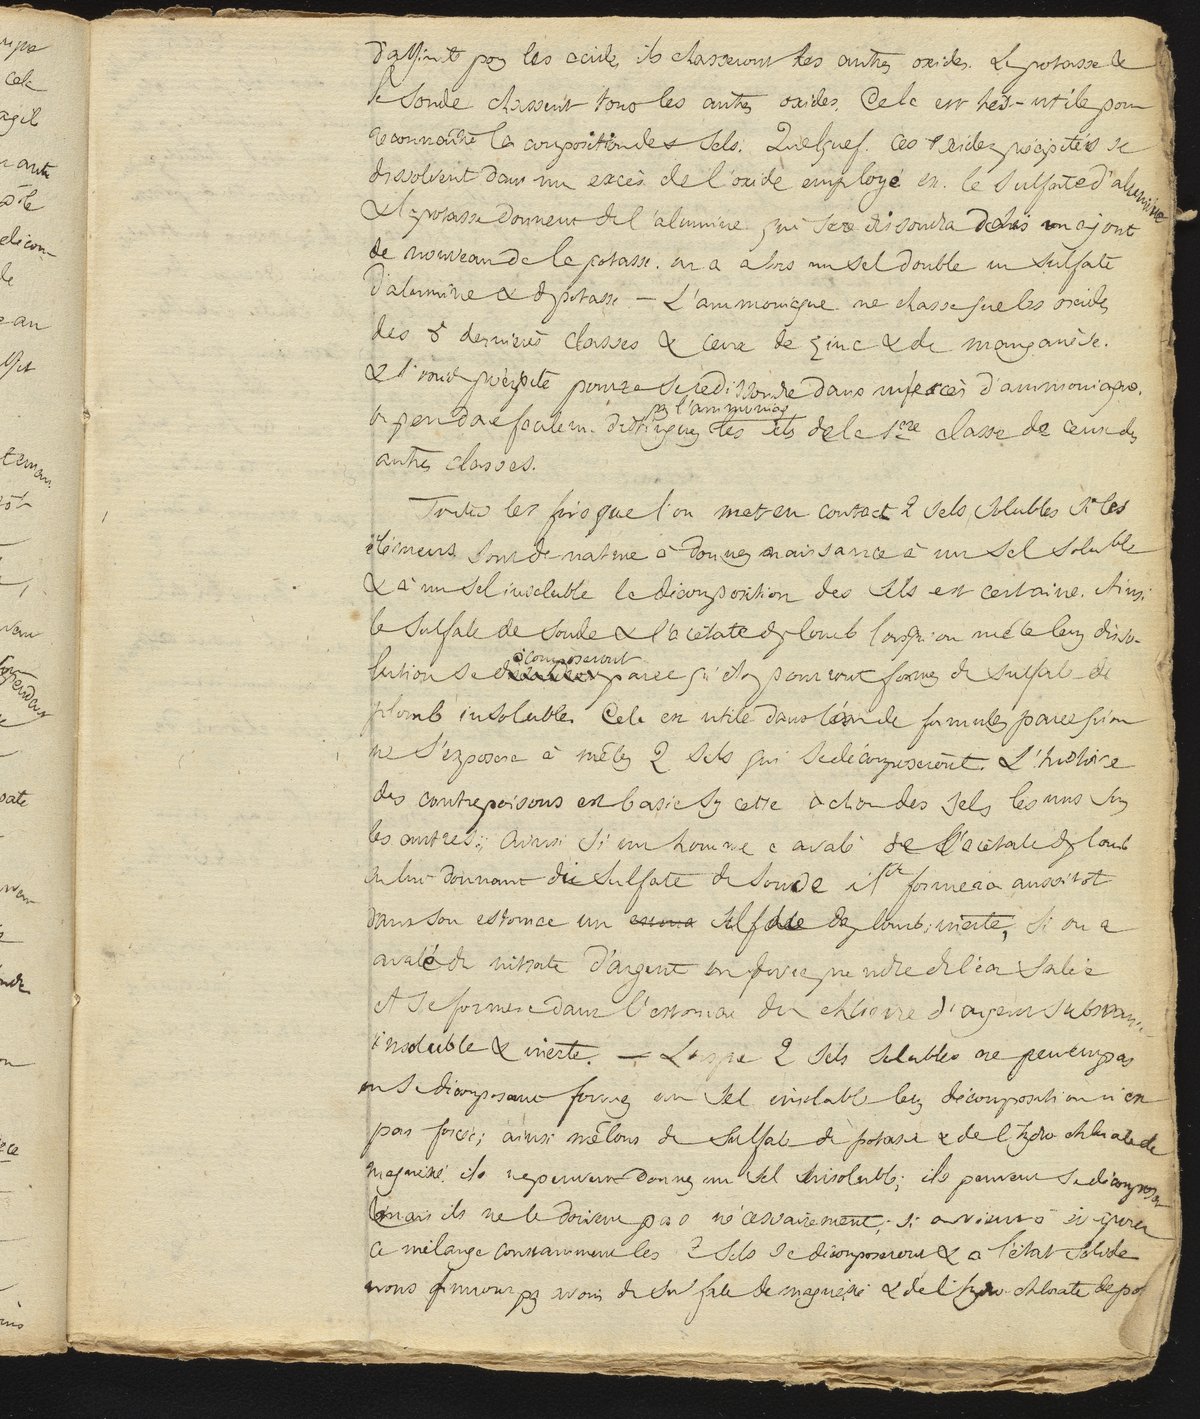 d'affinité pr les acides ils chasseront les autres oxides. La potasse &
la Soude chassent tous les autres oxides. Cela est très-utile pour
reconnaître la composition des sels. Quelquef. ces oxides précipités se
dissolvent dans un excès de l'oxide employé ex. le Sulfate d'alumine
& la potasse donnent de l'alumine qui sera dissoute on ajout
de nouveau de la potasse. on a alors un sel double un sulfate
d'alumine & de potasse — L'ammoniaque ne chasse que les oxides
des dernières classes & ceux de zinc & de manganèse.
& l'oxide précipité pourra se redissoudre dans un excès d'ammoniaque.
on pendra facilem. distinguer par l'ammoniaq les sels de la 1ere classe de ceux des
autres classes.
Toutes les fois que l'on met en contact 2 sels solubles si les
élémens sont de nature à donner naissance à un sel soluble
& à un sel insoluble la décomposition des sels est certaine. Ainsi
le Sulfate de soude & l'acétate de plomb lorsqu'on mêle leur disso-
lution se décomposeront parce qu'ils pourront former du sulfate de
plomb insoluble. Cela est utile dans l'art de formuler parce qu'on
ne s'exposera à mêler 2 sels qui se décomposeront. L'histoire
des contrepoisons est basée sur cette action des sels les uns sur
les autres; ainsi si un homme a avalé de l'acétate de plomb
en lui donnant du sulfate de soude il se formera aussitot
dans son estomac un sulfate de plomb inerte, si on a
avalé du nitrate d'argent on fera prendre de l'eau salée
et se formera dans l'estomac du chlorure d'argent substance
insoluble & inerte. — Lorsque 2 sels solubles ne peuvent pas
en se décomposant former un sel insoluble leur décomposition n'est
pas forcée; ainsi mêlons du sulfate de potasse & de l'hydrochlorate de
magnésie ils ne peuvent donner un sel insoluble; ils peuvent se décomposer
mais ils ne le doivent pas nécessairement; si on vient à évaporer
ce mélange constamment les 2 sels se décomposeront & à l'état solide
nous finirons par avoir du sulfate de magnésie & de l'hydro-chlorate de po